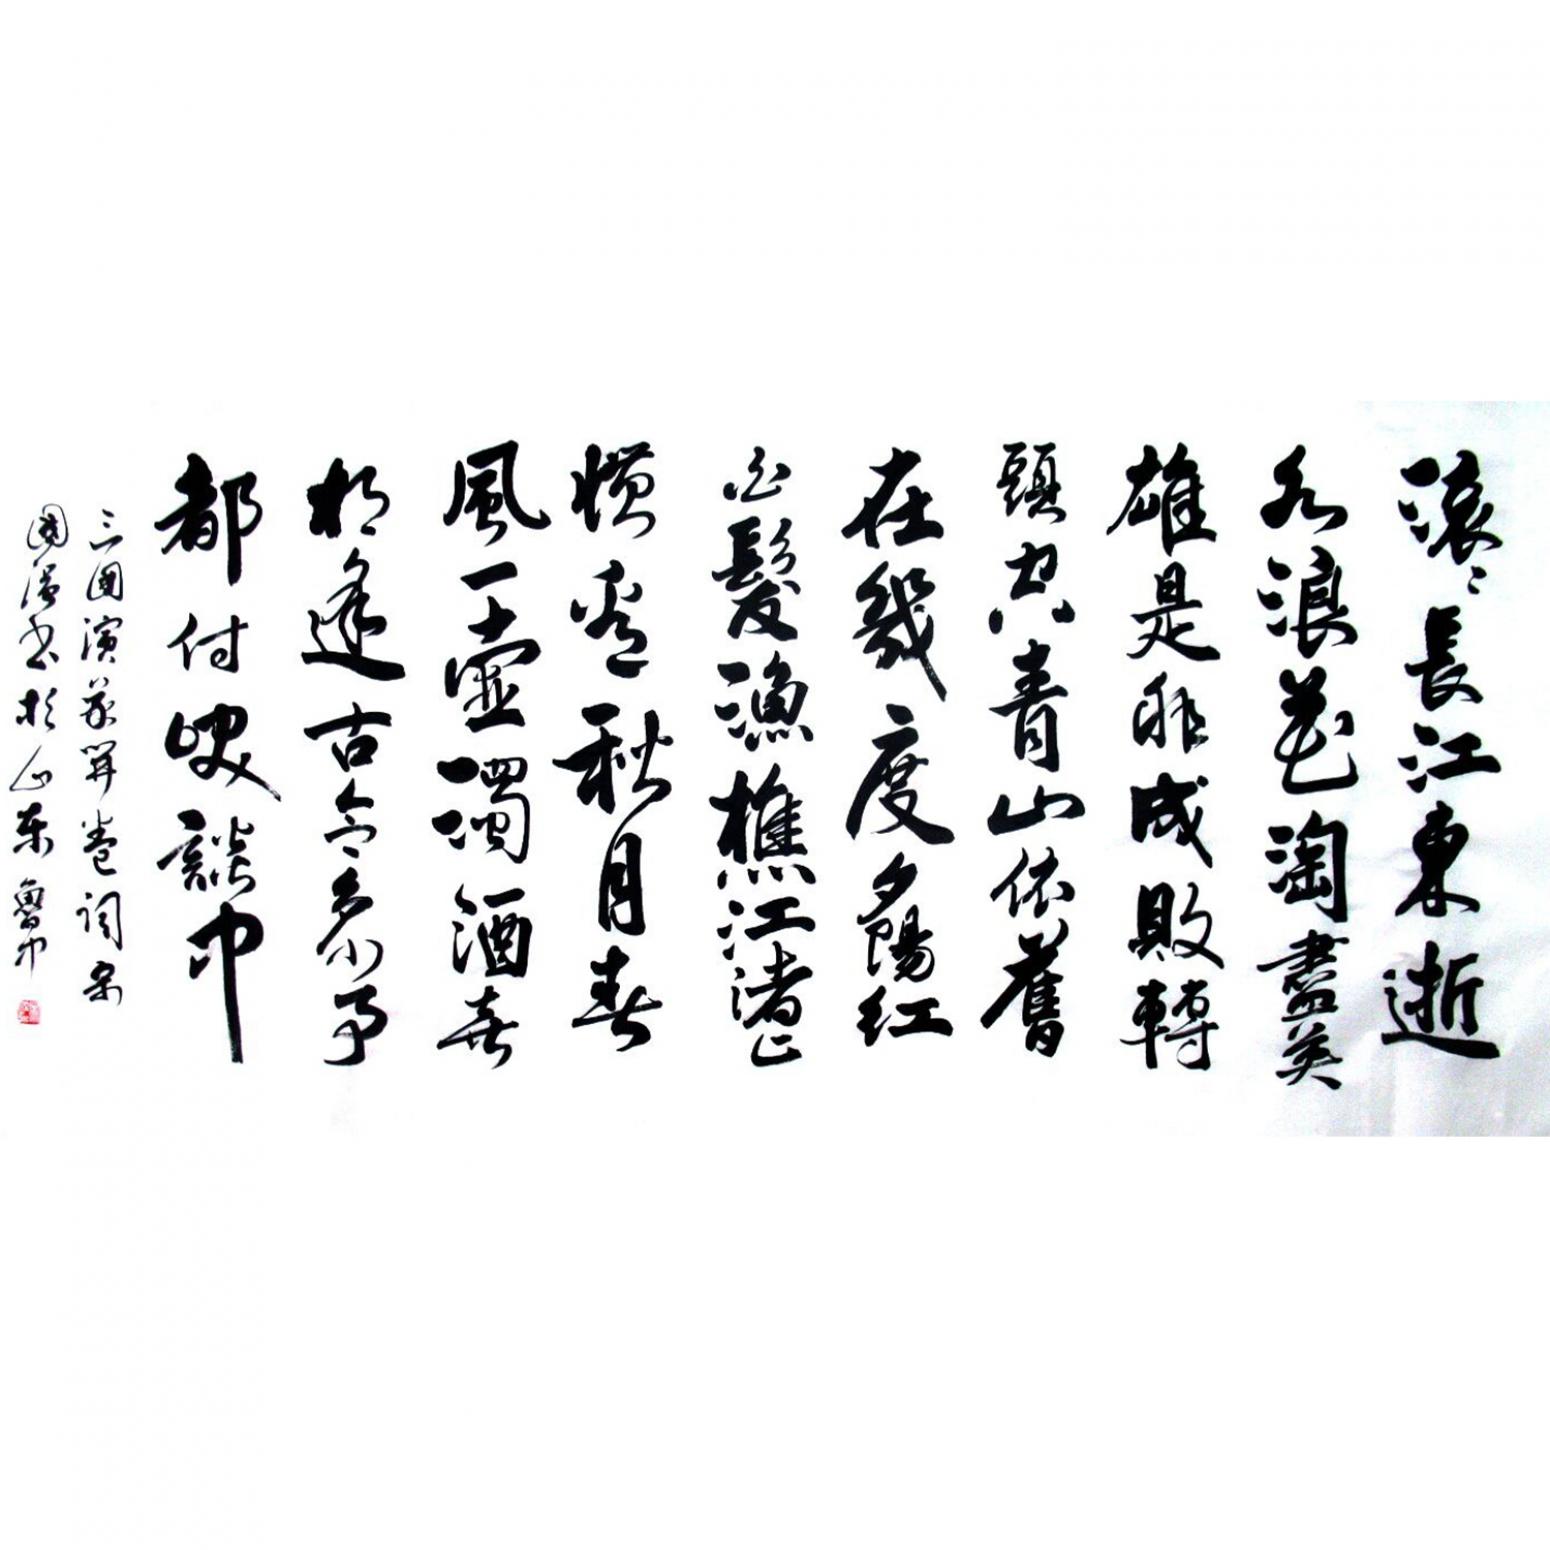 滚〻長江東逝
水浪花淘盡英
雄是非成敗轉
頭空青山依舊
在幾度夕陽紅
白髮漁樵江渚上
慣看秋月春
風一壺濁酒喜
相逢古今多少事
都付咲談中
三國演義開卷詞
國書於山東魯中